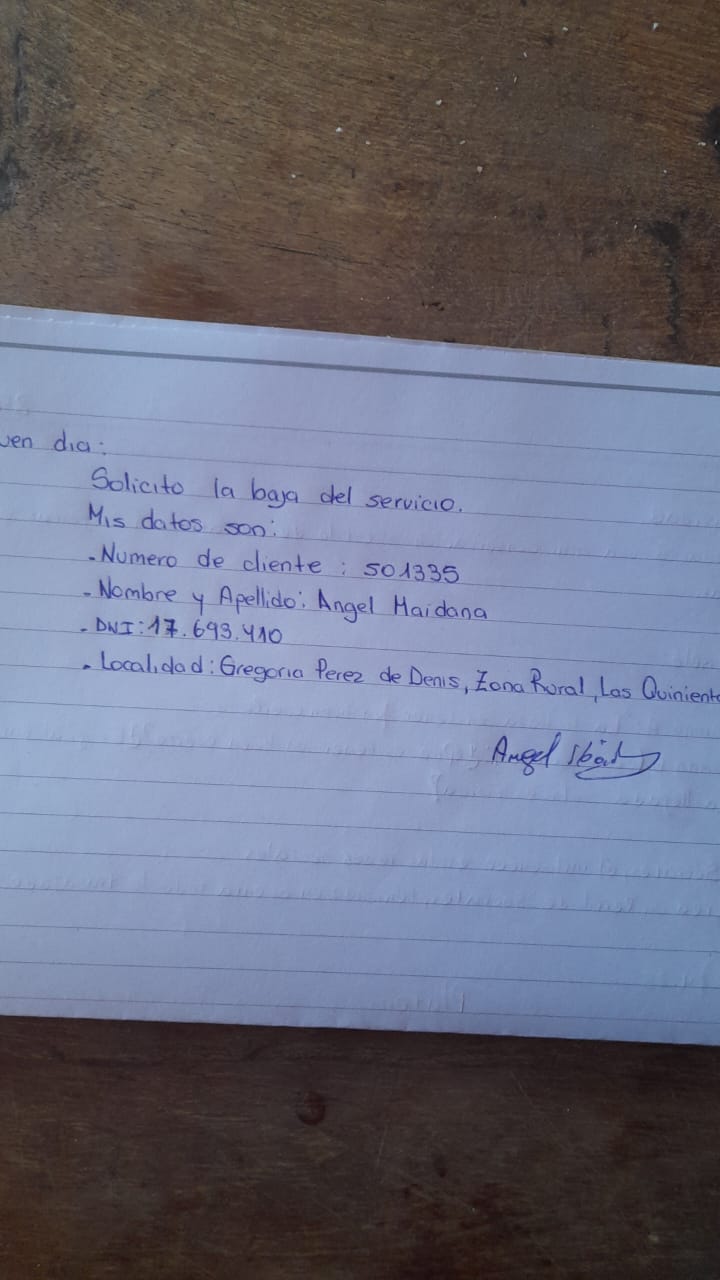 uen dia:
Solicito la baja del servicio.
Mis datos son:
-Numero de cliente : 501335
-Nombre y Apellido: Angel Maidana
-DNI: 17.693.410
-Localidad: Gregoria Perez de Denis, Zona Rural, Las Quiniento
Angel